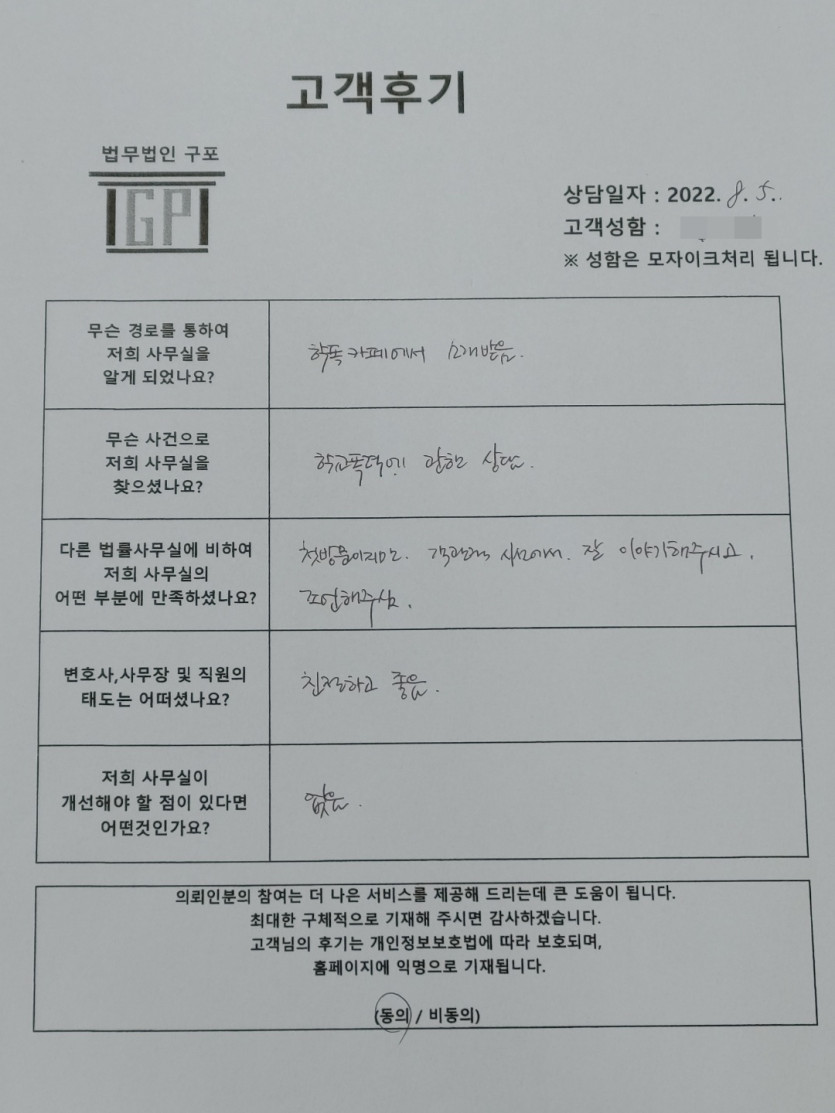 고객후기
법무법인 구포
GP
상담일자 : 2022. 8. 5.
고객성함 :
※ 성함은 모자이크처리 됩니다.
무슨 경로를 통하여
저희 사무실을
알게 되었나요?
학폭 카페에서 소개받음.
무슨 사건으로
저희 사무실을
찾으셨나요?
학교폭력에 관한 상담.
다른 법률사무실에 비하여
저희 사무실의
어떤 부분에 만족하셨나요?
첫방문이지만. 객관적 시선에서. 잘 이야기해주시고.
조언해주심.
변호사,사무장 및 직원의
태도는 어떠셨나요?
친절하고 좋음.
저희 사무실이
개선해야 할 점이 있다면
어떤것인가요?
없음.
의뢰인분의 참여는 더 나은 서비스를 제공해 드리는데 큰 도움이 됩니다.
최대한 구체적으로 기재해 주시면 감사하겠습니다.
고객님의 후기는 개인정보보호법에 따라 보호되며,
홈페이지에 익명으로 기재됩니다.
(동의 / 비동의)